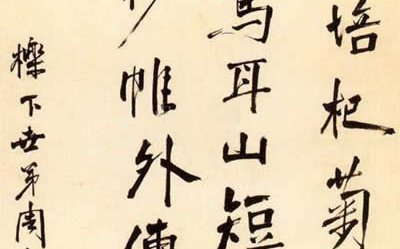 培杞菊
馬耳山短
帷外
櫟下世弟周